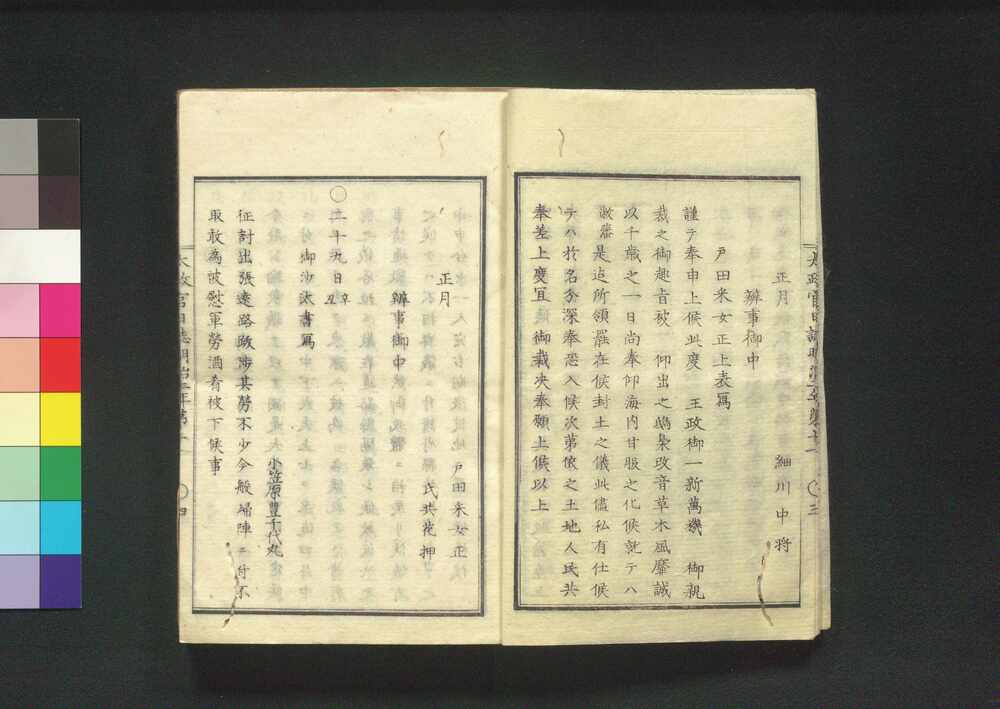 正月
細川中将
辨事御中
戸田釆女正上表寫
謹テ奉申上候此度　王政御一新萬機　御親
裁之御趣旨被　仰出之鴟梟改音草木風靡誠
以千歳之一日尚奉仰海内甘服之化候就テハ
敝藩是迠所領罷在候封土之儀此儘私有仕候
テハ於名分深奉恐入候次第依之土地人民共
奉差上度冝　御裁决奉願上候以上
正月
戸田釆女正
氏共花押
辨事御中
○二十九日辛丑
御沙汰書寫
小笠原豊千代丸
征討出張遠路跋渉其勞不少今般歸陣ニ付不
取敢為被慰軍勞酒肴被下候事
太政官日誌明治二年第十一
四